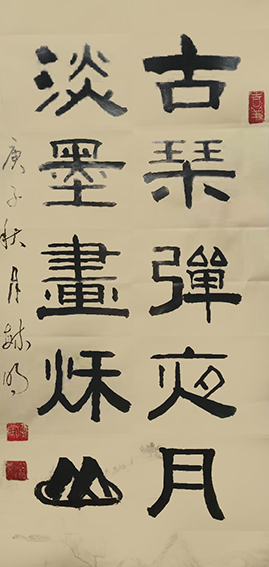 古琴彈夜月
淡墨畫秌山
庚子秋月